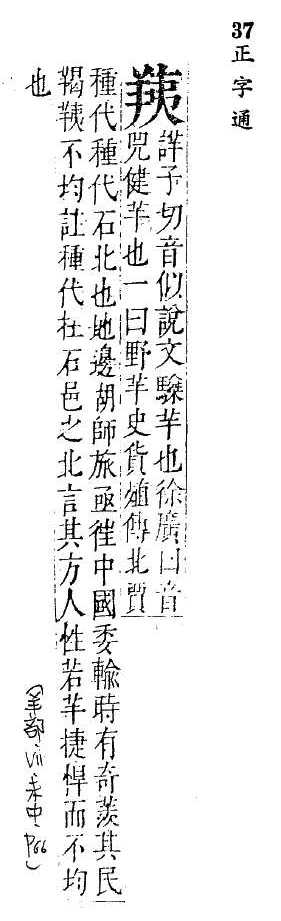 37正字通
羠
詳子切音似說文騬羊也徐廣曰音
兕健羊也一曰野羊史貨殖傳北賈
種代種代石北也地邊胡師旅亟徃中國委輸時有奇羨其民
羯羠不均註種代在石邑之北言其方人性若羊捷悍而不均
也
(羊部 vii 未中 P66)